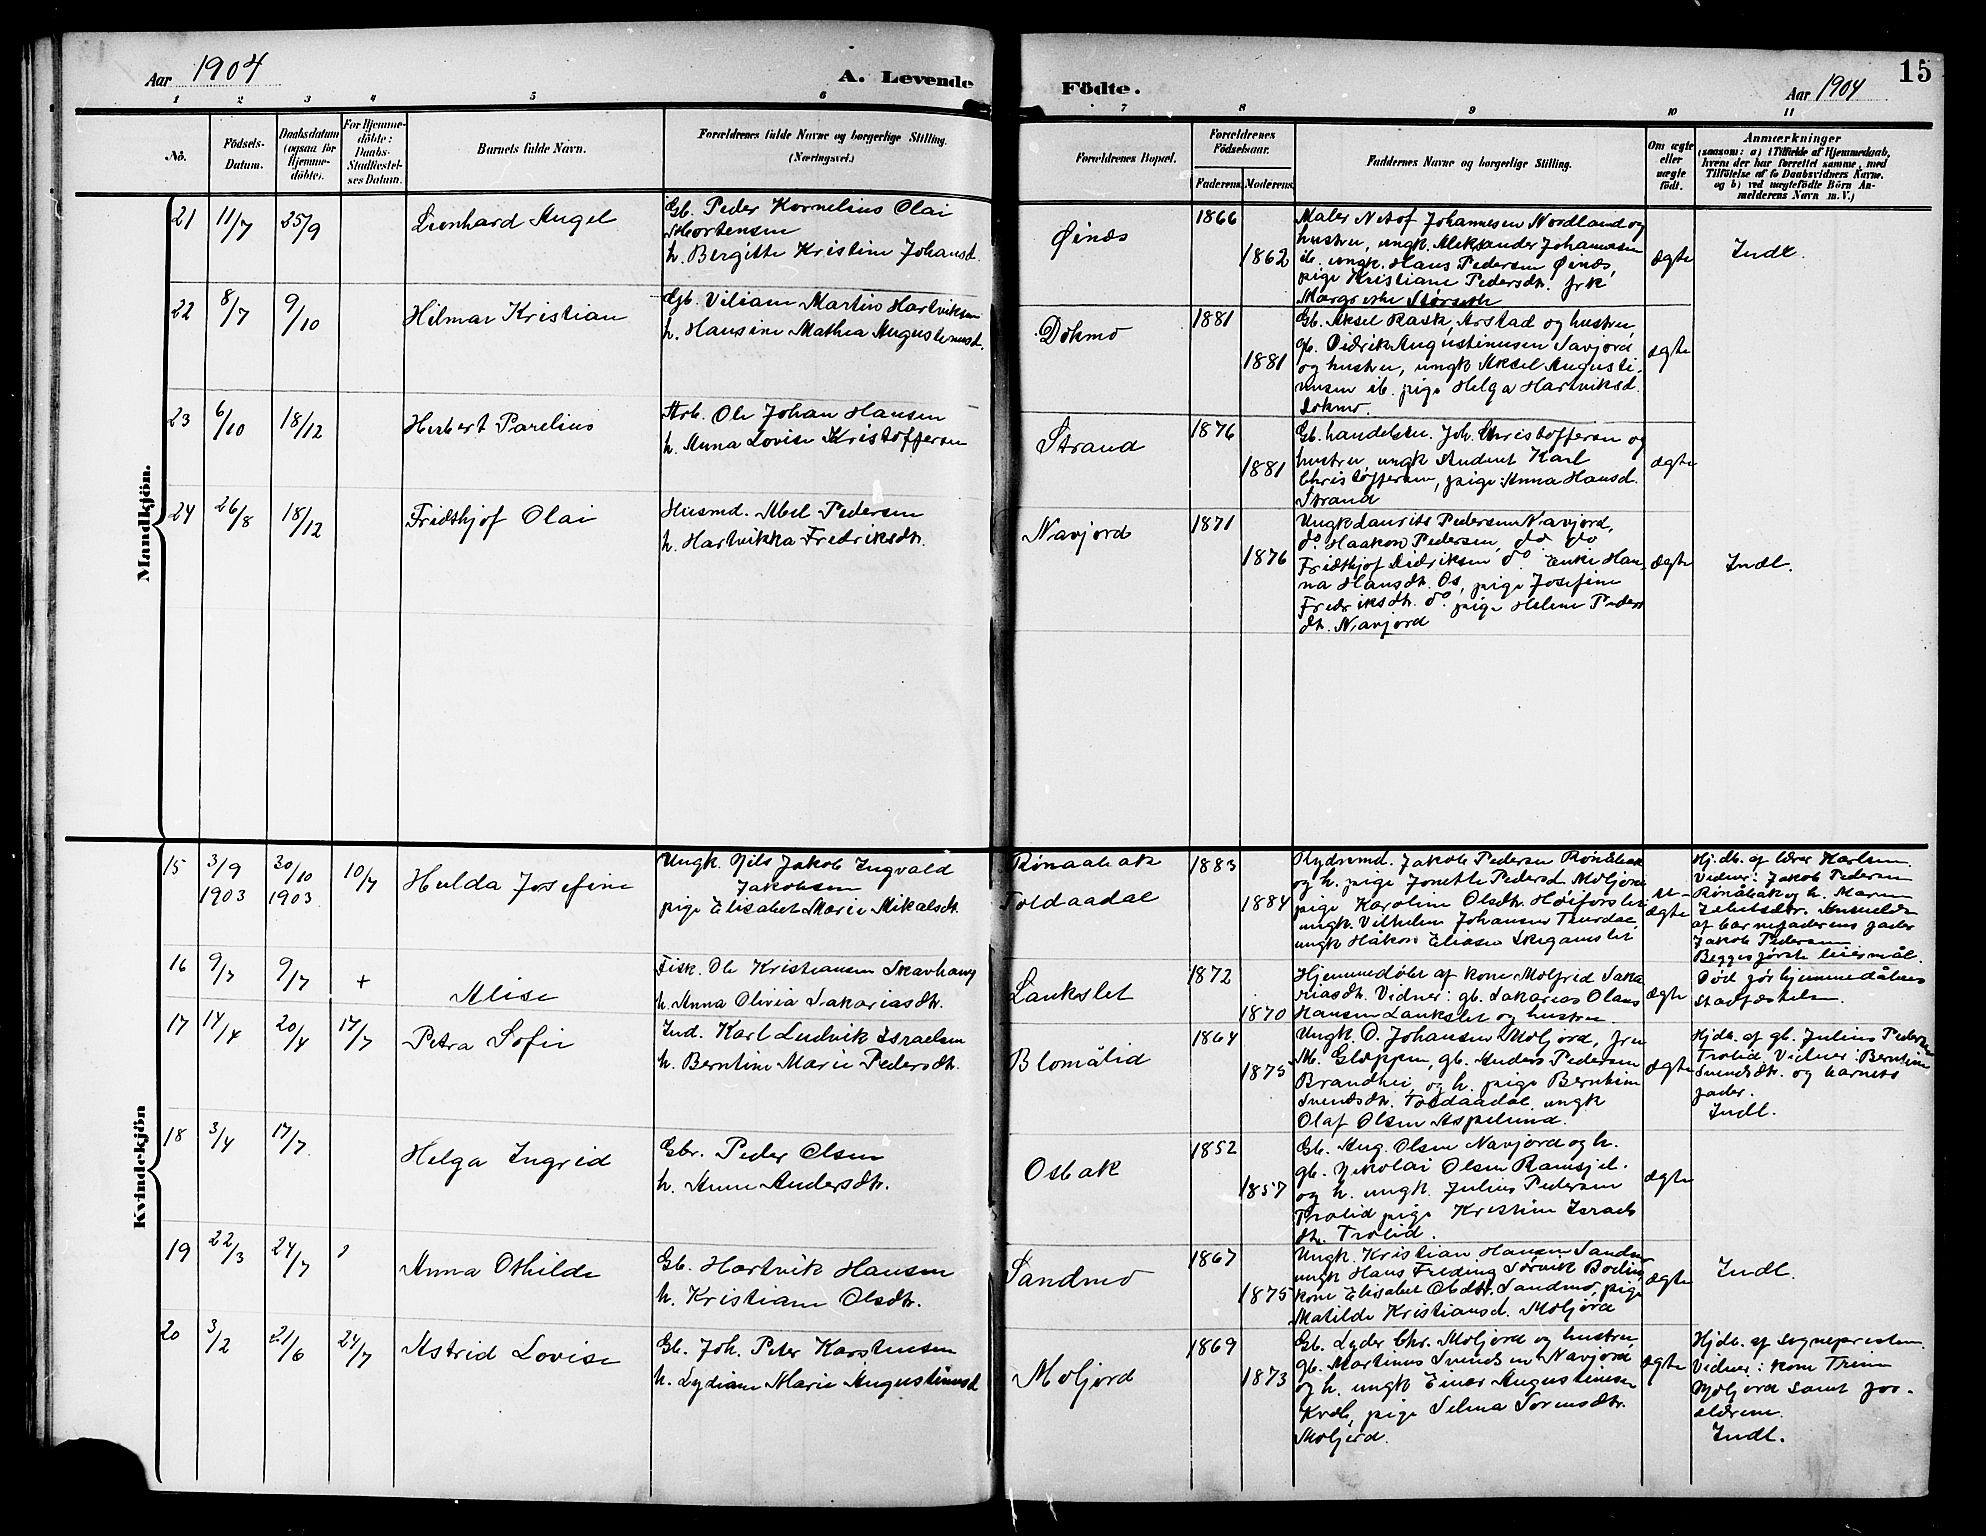 Aar 1904
A. Levende
Födte.
Aar 1904
15
1 2 3 4 5 6 7 8 9 10 11
No.
Födsels-
Datum.
Daabsdatum
(ogsaa for
Hjemme-
döbte).
For Hjemme-
döbte:
Daabs-
Stadfæstel-
ses Datum.
Barnets fulde Navn.
Forældrenes fulde Navne og borgerlige Stilling.
(Næringsvei.)
Forældrenes Bopæl.
Forældrenes
Födselsaar.
Faderens. Moderens.
Faddernes Navne og borgerlige Stilling.
Om ægte
eller
uægte
födt.
Anmærkninger
(saasom: a) i Tilfælde af Hjemmedaab,
hvem der har forrettet samme, med
Tilföielse af to Daabsvidners Navne.
og b) ved uægtefödte Börn An-
melderens Navn m. V.)
Mandkjön.
21 11/7 25/9
Leonhard Angel
Gb. Peder Kornelius Olai
Mortensen
h. Bergitte Kristine Johansd.
Øinæs
1866
1862
Maler Johannesen Nordland og
hustru, ungk. Aleksander Johannesen
ib. ungk. Hans Pedersen Øinæs,
pige Kristiane Pedersdtr. frk
Margrethe Størseth
ægte
Indl.
22 8/7 9/10
Hilmar Kristian
Gb. Viliam Martin Hartviksen
h. Hansine Mathea Augustinusd.
Dokmo
1881
1881
Gb. Aksel Rask, Arstad og hustru,
gb. Didrik Augustinusen Navjord
og hustru, ungk Aksel Augusti-
nusen ib. pige Helga Hartviksd.
Dokmo.
ægte
23 6/10 18/12
Herbert Parelius
Arb. Ole Johan Hansen
h. Anna Lovise Kristoffersen
Strand
1876
1881
Gb. handelsm. Joh. Christoffersen og
hustru, ungk Student Karl
Christoffersen, pige Anna Hansd.
Strand
ægte
24 26/8 18/12
Fridthjof Olai
Husmd. Abel Pedersen
h. Hartvikka Fredriksdtr.
Navjord
1871
1876
Ungk Laurits Pedersen Navjord,
do Haakon Pedersen, do do
Fridthjof Didriksen do. Enke Han-
na Hansdtr. Os, pige Josefine
Fredriksdtr. do. pige Helene Peders
dtr. Navjord
ægte
Indl.
Kvindekjön
15 3/9 1903 30/10 1903 10/7
Hulda Josefine
Ungk. Nils Jakob Ingvald
Jakobsen
pige Elisabet Marie Mikalsdtr.
Rønaabak
Toldaadal
1883
1884
Rydnmd. Jakob Pedersen Rønåbak
og h. pige Jonette Pedersd. Moljord
pige Karoline Olsdtr. Høiforslet
ungk. Vilhelm Johansen
ungk Håkon Eliasen Skegamslet
u-
ægte
Hj.db. af lærer Karlsen.
Vidner: Jakob Pedersen
Rønåbak og h. Maren
Anmeldt
af barnefaderens fader
Jakob Pedersen
Begges første leiermål.
16 9/7 9/7 +
Alise
Fisk. Ole Kristiansen Skavhaug
h. Anna Olivia Sakariasdtr.
Lankslet
1872
1870
Hjemmedøbt af kone Molfrid Saka
riasdtr. Vidner: gb. Sakarias Olaus
Hansen Lankslet og hustru.
ægte
Død før hjemmedåbens
stadfæstelse.
17 14/4 20/4 17/7
Petra Sofie
Ind. Karl Ludvik Israelsen
h. Berntine Marie Pedersdtr.
Blomålid
1864
1875
Ungk. O. Johansen Moljord, fru
M. Gløppen, gb. Anders Pedersen
Brandhei, og h. pige Berntine
Svendsdtr. Toldaadal ungk
Olaf Olsen Aspelund.
ægte
Hjdb. af gb. Julius Pedersen
Trolid. Vidner: Berntine
Svendsdtr. og barnets
fader.
Indl.
18 3/4 17/7
Helga Ingrid
Gbr. Peder Olsen
h. Anne Andersdtr.
Osbak
1852
1857
Gb. Aug. Olsen Navjord og h.
gb. Nikolai Olsen Ramsjel.
og h. ungk. Julius Pedersen
Trolid pige Kristine Israels
dtr. Trolid.
ægte
19 22/3 24/7
Anna Othilde
Gb. Hartvik Hansen
h. Kristiane Olsdtr.
Sandmo
1867
1875
Ungk. Kristian Hansen Sandmo
ungk Hans Sørvik Bodin,
kone Elisabet Olsdtr. Sandmo, pige
Matilde Kristiansd. Moljord
ægte
Indl.
20 3/2 21/6 24/7
Astrid Lovise
Gb. Joh. Peter Karstensen
h. Lydiane Marie Augustinusd
Moljord
1869
1873
Gb. Lyder Chr. Moljord og hustru,
gb. Martinus Svendsen Navjord
og h. ungk Einar Augustinusen
pige Selma Sørensdtr.
Moljord.
ægte
Hjdb. af sognepresten.
Vidner: kone Trine
Moljord samt for-
ældrene.
Indl.